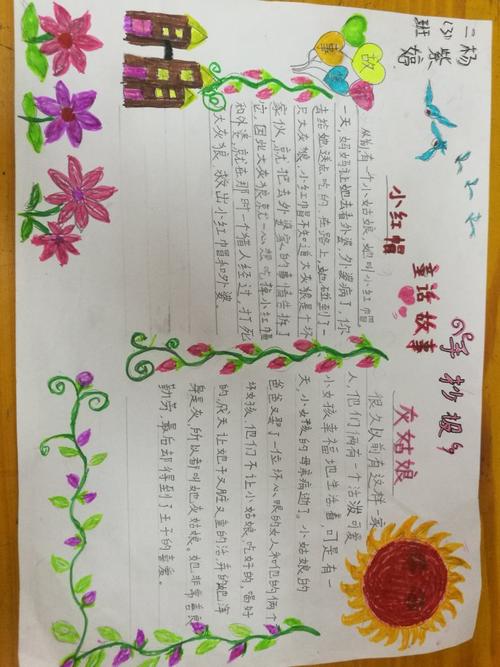 二(3)班
杨紫婷
故事
手抄报
童话故事
小红帽
从前,有一个小姑娘,她叫小红帽。
一天妈妈让她去看外婆,外婆病了,你
去给她送点吃的,在路上,她碰到了一
只大灰狼,小红帽不知道大灰狼是个坏
家伙,就把去外婆家的事情告拆了
它,因此大灰狼就一心想吃掉小红帽
和外婆,就在那时一个猎人经过,打死
大灰狼,救出小红帽和外婆。
灰姑娘
很久以前有这样一家
人,他们俩有一个活泼可爱
小女孩幸福地生活着,可是有一
天,小女孩的母亲病逝了。小姑娘的
爸爸又娶了一位坏心眼的女人和他的俩个
坏女孩,他们不让小姑娘吃好的,喝好
的,成天让她干又脏又重的活弄的她浑
身是灰,所以都叫她灰姑娘。她非常善良
勤劳,最后却得到了王子的喜爱。